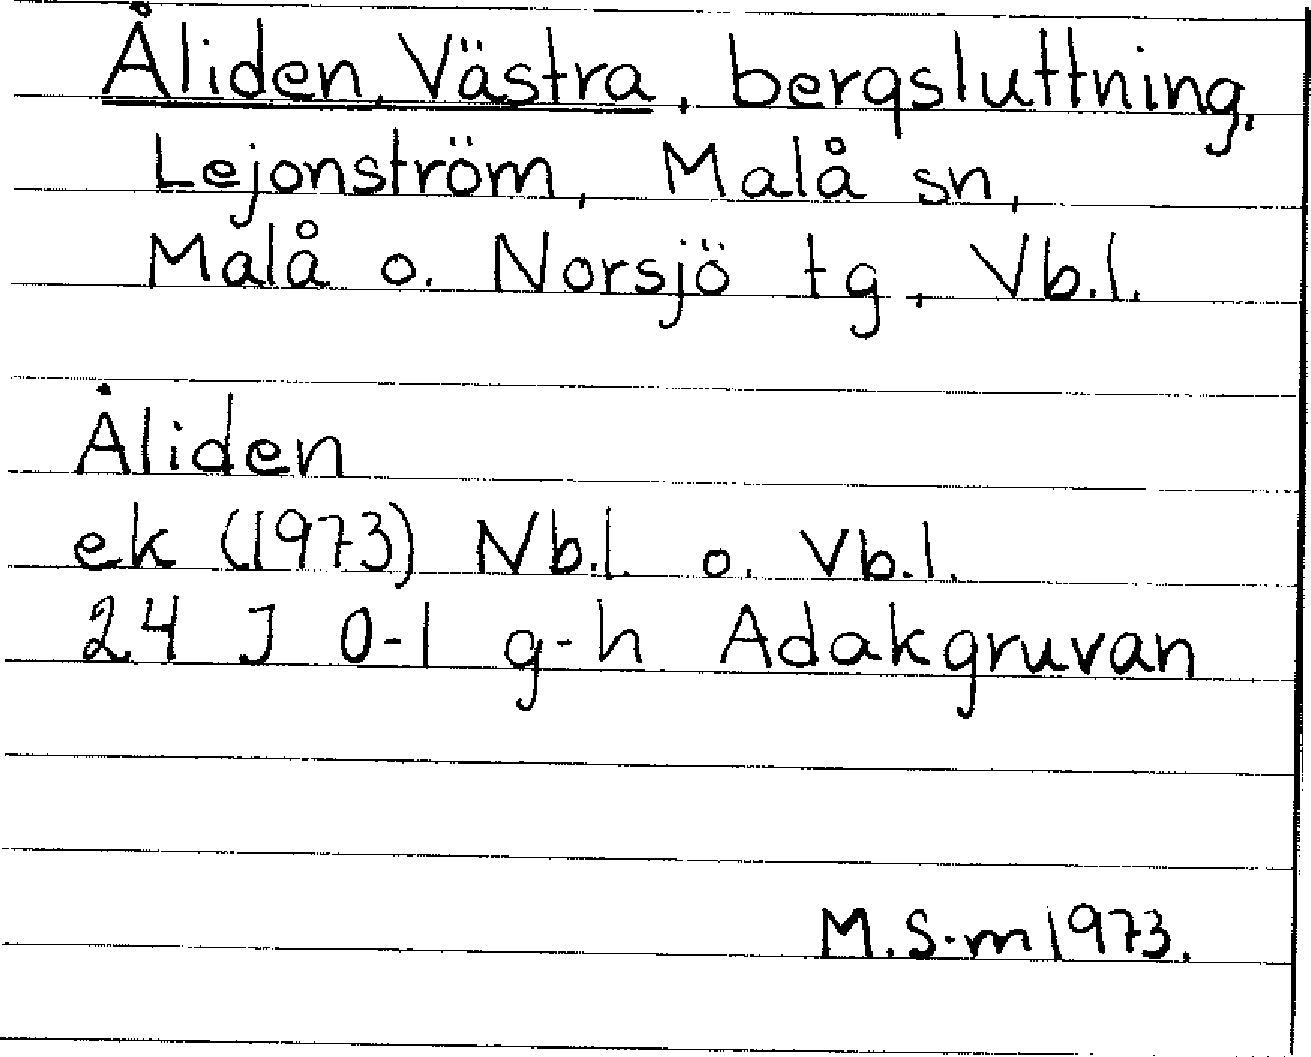 Åliden, Västra, bergsluttning,
Lejonström, Malå sn,
Malå o. Norsjö tg, Vb.l.
Åliden
ek (1973) Nb.l. o. Vb.l.
24 J 0-1 g-h Adakgruvan
M.S-m 1973.